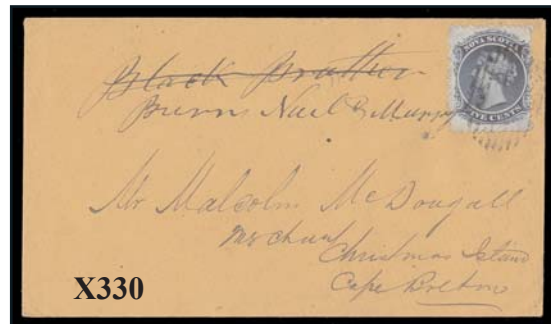 NOVA SCOTIA
FIVE CENTS
Black Brothers
Burns
Mr Malcolm McDougall
Merchant
Christmas Island
Cape Breton
X330